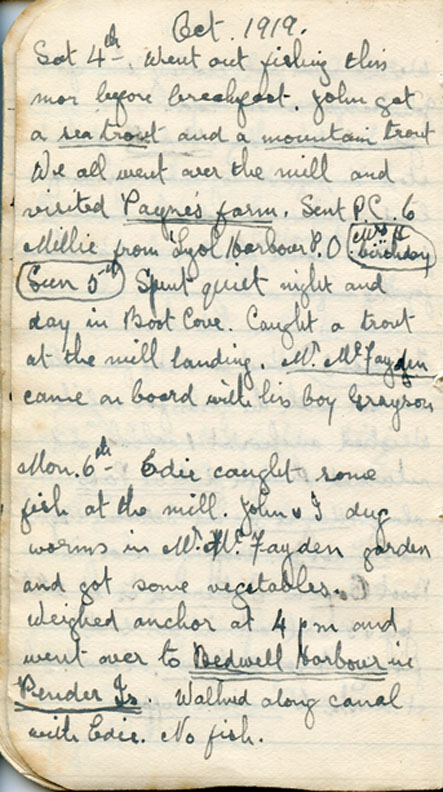 Oct. 1919.
Sat 4th. Went out fishing this
mor before breakfast. John got
a sea trout and a mountain trout
We all went over the mill and
visited Payne's farm. Sent P.C. 6
Millie from Lyol Harbour P.O. Mrs H birthday
Sun 5th Spent quiet night and
day in Boot Cove. Caught a trout
at the mill landing. Mr. McFayden
came on board with his boy Grayson
Mon. 6th Edie caught some
fish at the mill. John & I dug
worms in Mr. McFayden garden
and got some vegetables.
Weighed anchor at 4 pm and
went over to Bedwell Harbour in
Pender Is. Walked along canal
with Edie. No fish.